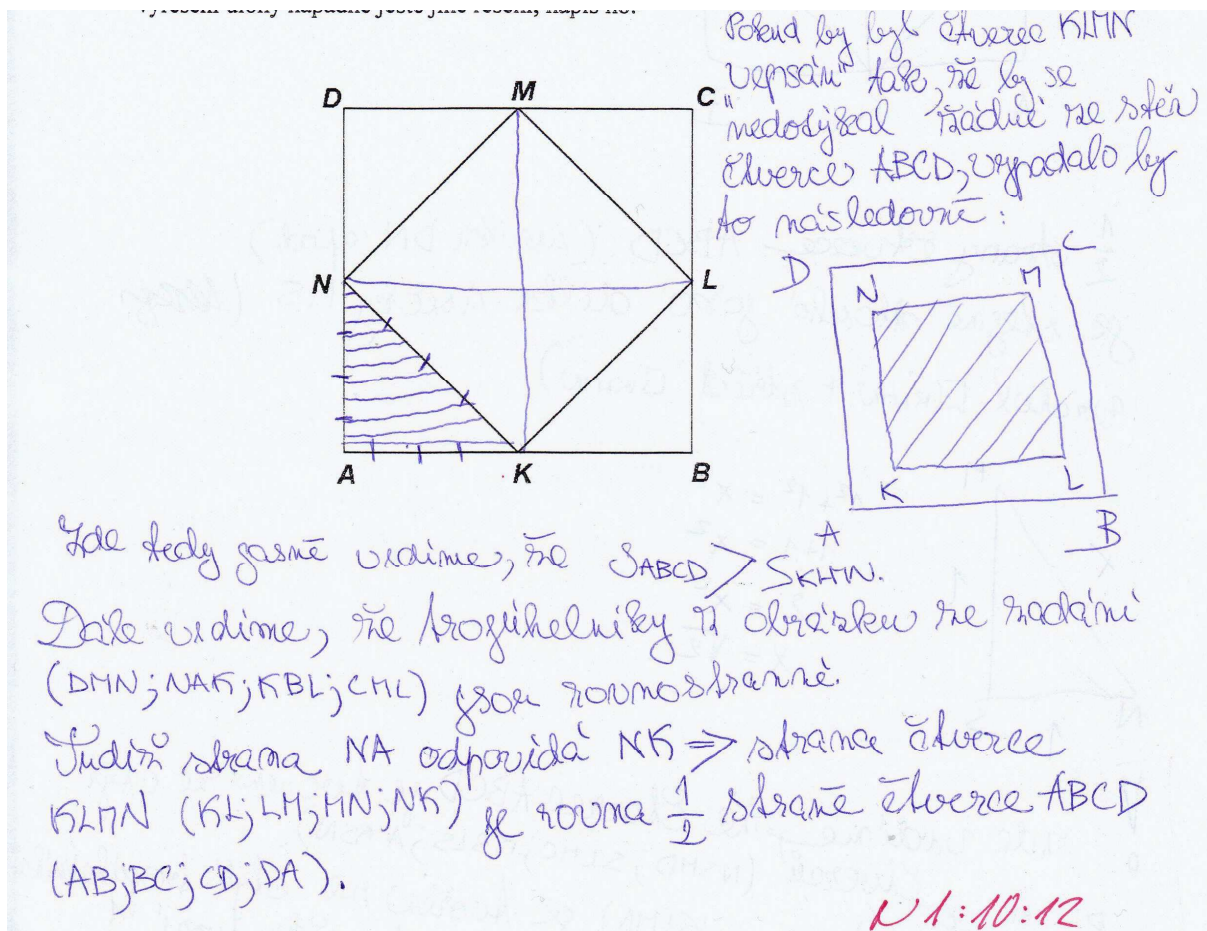 vyřešení úlohy napadne ještě jiné řešení, napiš ho.
Pokud by byl čtverec KLMN
"vepsán" tak, že by se
nedotýkal žádné ze stěn
čtverce ABCD, vypadalo by
to následovně:
D M C
N L
A K B
D C
N M
K L
A B
Zde tedy jasně vidíme, že SABCD > SKLMN.
Dále vidíme, že trojúhelníky z obrázku ze zadání
(DMN; NAK; KBL; CML) jsou rovnostranné.
Tudíž strana NA odpovídá NK => strana čtverce
KLMN (KL; LM; MN; NK) je rovna 1/2 straně čtverce ABCD
(AB; BC; CD; DA).
N1:10:12